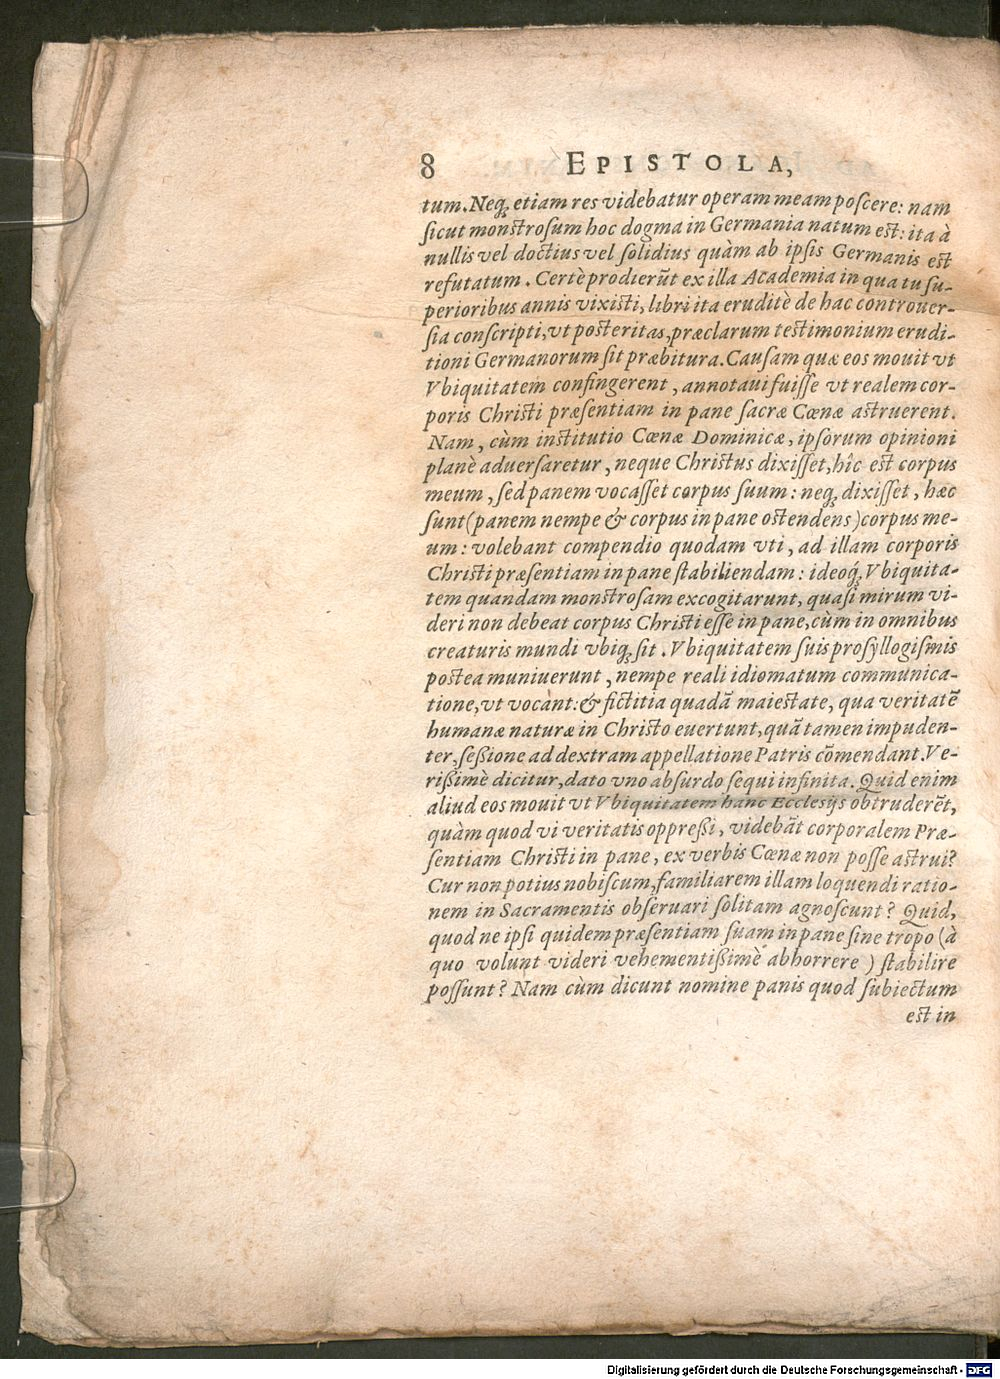 8 EPISTOLA,
tum. Neq; etiam res videbatur operam meam poscere: nam
sicut monstrosum hoc dogma in Germania natum est: ita à
nullis vel doctius vel solidius quàm ab ipsis Germanis est
refutatum. Certè prodierũt ex illa Academia in qua tu su-
perioribus annis vixisti, libri ita eruditè de hac controuer-
sia conscripti, vt posteritas, præclarum testimonium erudi-
tioni Germanorum sit præbitura. Causam quæ eos mouit vt
Vbiquitatem confingerent, annotaui fuisse vt realem cor-
poris Christi præsentiam in pane sacræ Cœnæ astruerent.
Nam, cùm institutio Cœnæ Dominicæ, ipsorum opinioni
planè aduersaretur, neque Christus dixisset, hîc est corpus
meum, sed panem vocasset corpus suum: neq; dixisset, hæc
sunt (panem nempe & corpus in pane ostendens) corpus me-
um: volebant compendio quodam vti, ad illam corporis
Christi præsentiam in pane stabiliendam: ideoq́; Vbiquita-
tem quandam monstrosam excogitarunt, quasi mirum vi-
deri non debeat corpus Christi esse in pane, cùm in omnibus
creaturis mundi vbiq; sit. Vbiquitatem suis prosyllogismis
postea muniuerunt, nempe reali idiomatum communica-
tione, vt vocant: & fictitia quadã maiestate, qua veritatẽ
humanæ naturæ in Christo euertunt, quã tamen impuden-
ter, seßione ad dextram appellatione Patris cõmendant. Ve-
rißimè dicitur, dato vno absurdo sequi infinita. Quid enim
aliud eos mouit vt Vbiquitatem hanc Ecclesijs obtruderẽt,
quàm quod vi veritatis oppreßi, videbãt corporalem Præ-
sentiam Christi in pane, ex verbis Cœnæ non posse astrui?
Cur non potius nobiscum, familiarem illam loquendi ratio-
nem in Sacramentis obseruari solitam agnoscunt? Quid,
quod ne ipsi quidem præsentiam suam in pane sine tropo (à
quo volunt videri vehementißimè abhorrere) stabilire
possunt? Nam cùm dicunt nomine panis quod subiectum
est in
Digitalisierung gefördert durch die Deutsche Forschungsgemeinschaft - DFG